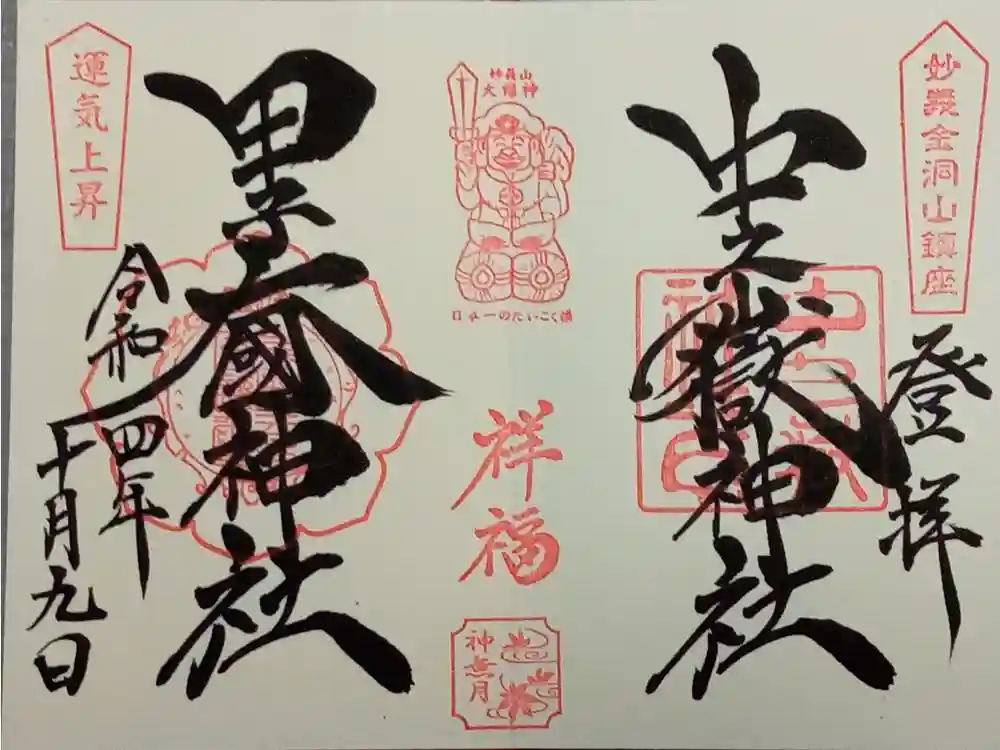 妙義金洞山鎮座
登拝
中之嶽神社
妙義山
日本一のだいこく様
祥福
神無月
甲子大國神社
運気上昇
令和四年
十月九日